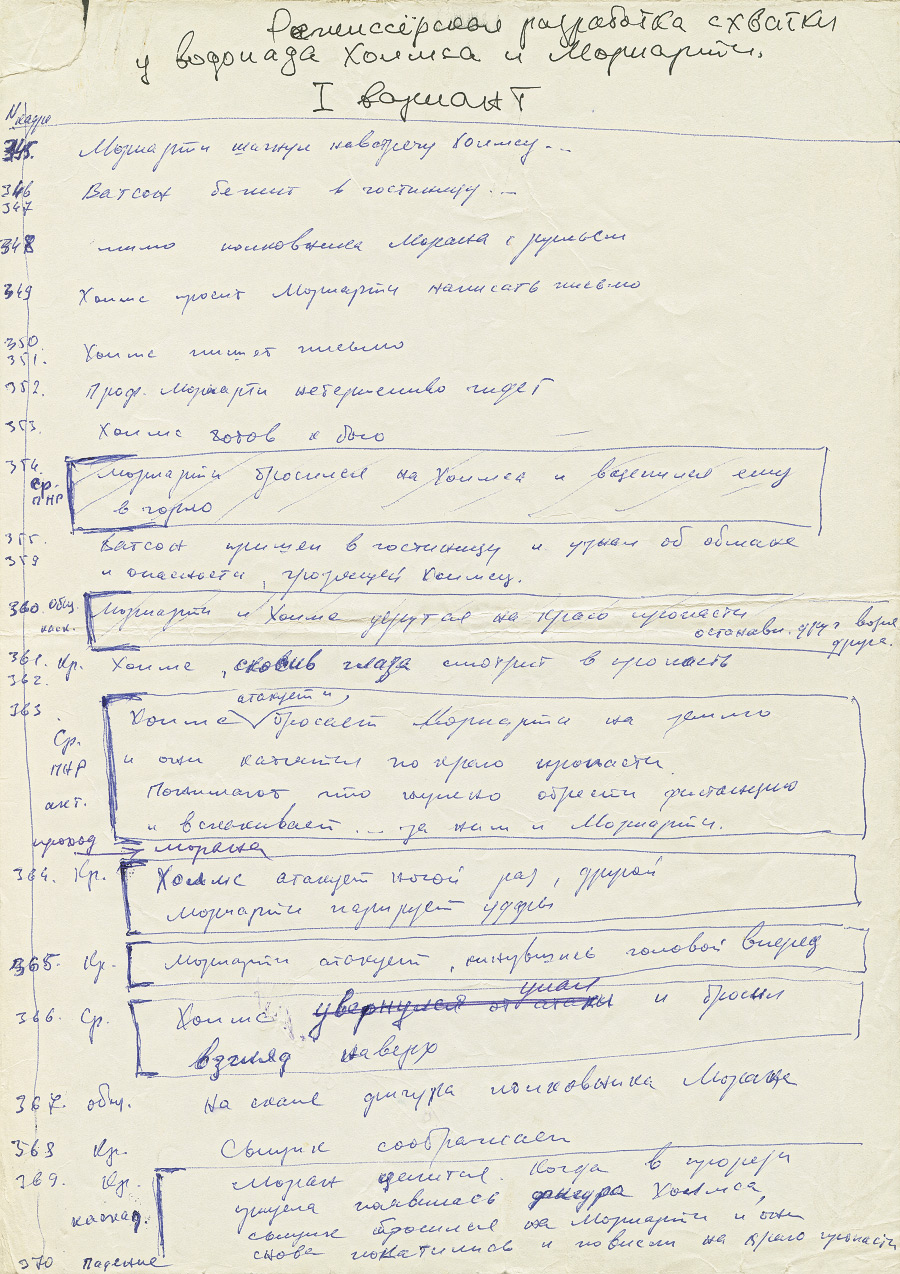 Режиссёрская разработка схватки
у водопада Холмса и Мориарти.
I вариант
N кадра
345. Мориарти шагнул навстречу Холмсу...
346 Ватсон бежит в гостиницу...
347
348 мимо полковника Морана с ружьем
349 Холмс просит Мориарти написать письмо
350. Холмс пишет письмо
351.
352. Проф. Мориарти нетерпеливо ждет
353. Холмс готов к бою
354. Мориарти бросился на Холмса и вцепился ему
ср. ПНР в горло
355. Ватсон пришел в гостиницу и узнал об обмане
359 и опасности, грозящей Холмсу.
360. общ. Мориарти и Холмс дерутся на краю пропасти
каск. останови. друг возле
друга.
361. Кр. Холмс, скосив глаза смотрит в пропасть
362.
атакует и
363 Холмс бросает Мориарти на землю
Ср. и они катятся по краю пропасти
ПНР Понимают что нужно обрести дистанцию
акт. и вскакивает... за ним и Мориарти.
проход Морана
364. Кр. Холмс атакует ногой раз, другой
Мориарти парирует удары
365. Кр. Мориарти атакует, кинувшись головой вперед
упал
366. Ср. Холмс увернулся от атаки и бросил
взгляд наверх
367. общ. На скале фигура полковника Морана
368 Кр. Сыщик соображает
369. Кр. Моран целится. Когда в прорези
каскад. прицела появилась фигура Холмса,
сыщик бросился на Мориарти и они
370 Падение снова покатились и повисли на краю пропасти